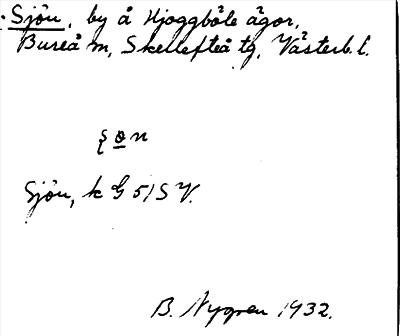 Sjön, by å Hjoggböle ägor,
Bureå sn, Skellefteå tg, Västerb. l.
Sjön, k G 51 S V.
B. Nygren 1932.